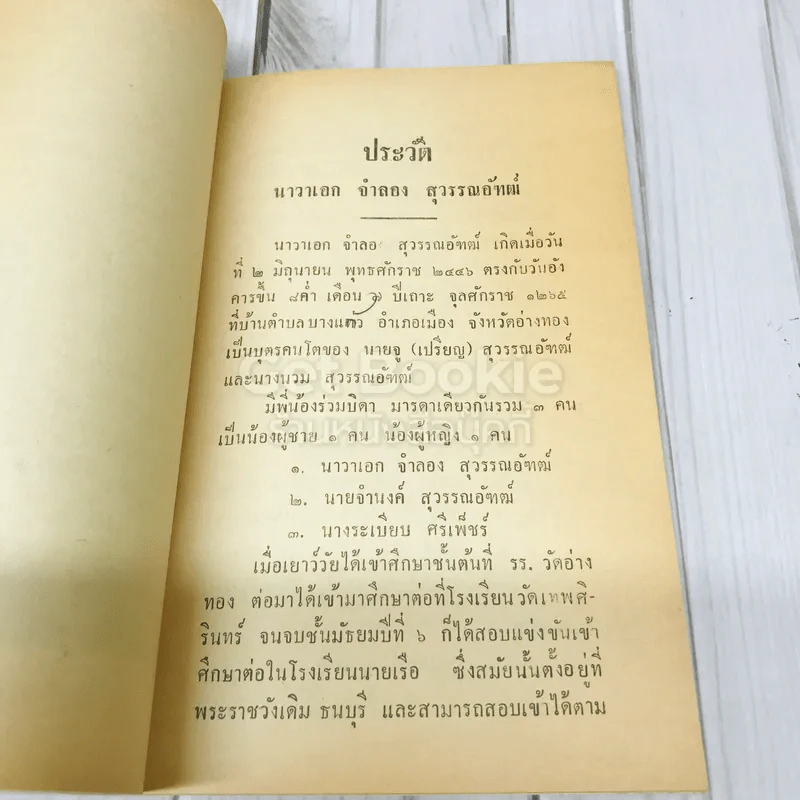 ประวัติ
นาวาเอก จำลอง สุวรรณอัฑฒ์
นาวาเอก จำลอ สุวรรณอัฑฒ์ เกิดเมื่อวัน
ที่ ๒ มิถุนายน พุทธศักราช ๒๔๔๖ ตรงกับวันอัง
คารขึ้น ๘ค่ำ เดือน ๗ ปีเถาะ จุลศักราช ๑๒๖๕
ที่บ้านตำบลบางแก้ว อำเภอเมือง จังหวัดอ่างทอง
เป็นบุตรคนโตของ นายจู (เปรียญ) สุวรรณอัฑฒ์
และนางนวม สุวรรณอัฑฒ์
GetBookie
มีพี่น้องร่วมบิดา มารดาเดียวกันรวม ๓ คน
เป็นน้องผู้ชาย ๑ คน น้องผู้หญิง ๑ คน
๑. นาวาเอก จำลอง สุวรรณอัฑฒ์
๒. นายจำนงค์ สุวรรณอัฑฒ์
๓. นางระเบียบ ศรีเพ็ชร์
เมื่อเยาว์วัยได้เข้าศึกษาชั้นต้นที่ รร. วัดอ่าง
ทอง ต่อมาได้เข้ามาศึกษาต่อที่โรงเรียนวัดเทพศิ-
รินทร์ จนจบชั้นมัธยมปีที่ ๖ ก็ได้สอบแข่งขันเข้า
ศึกษาต่อในโรงเรียนนายเรือ ซึ่งสมัยนั้นตั้งอยู่ที่
พระราชวังเดิม ธนบุรี และสามารถสอบเข้าได้ตาม